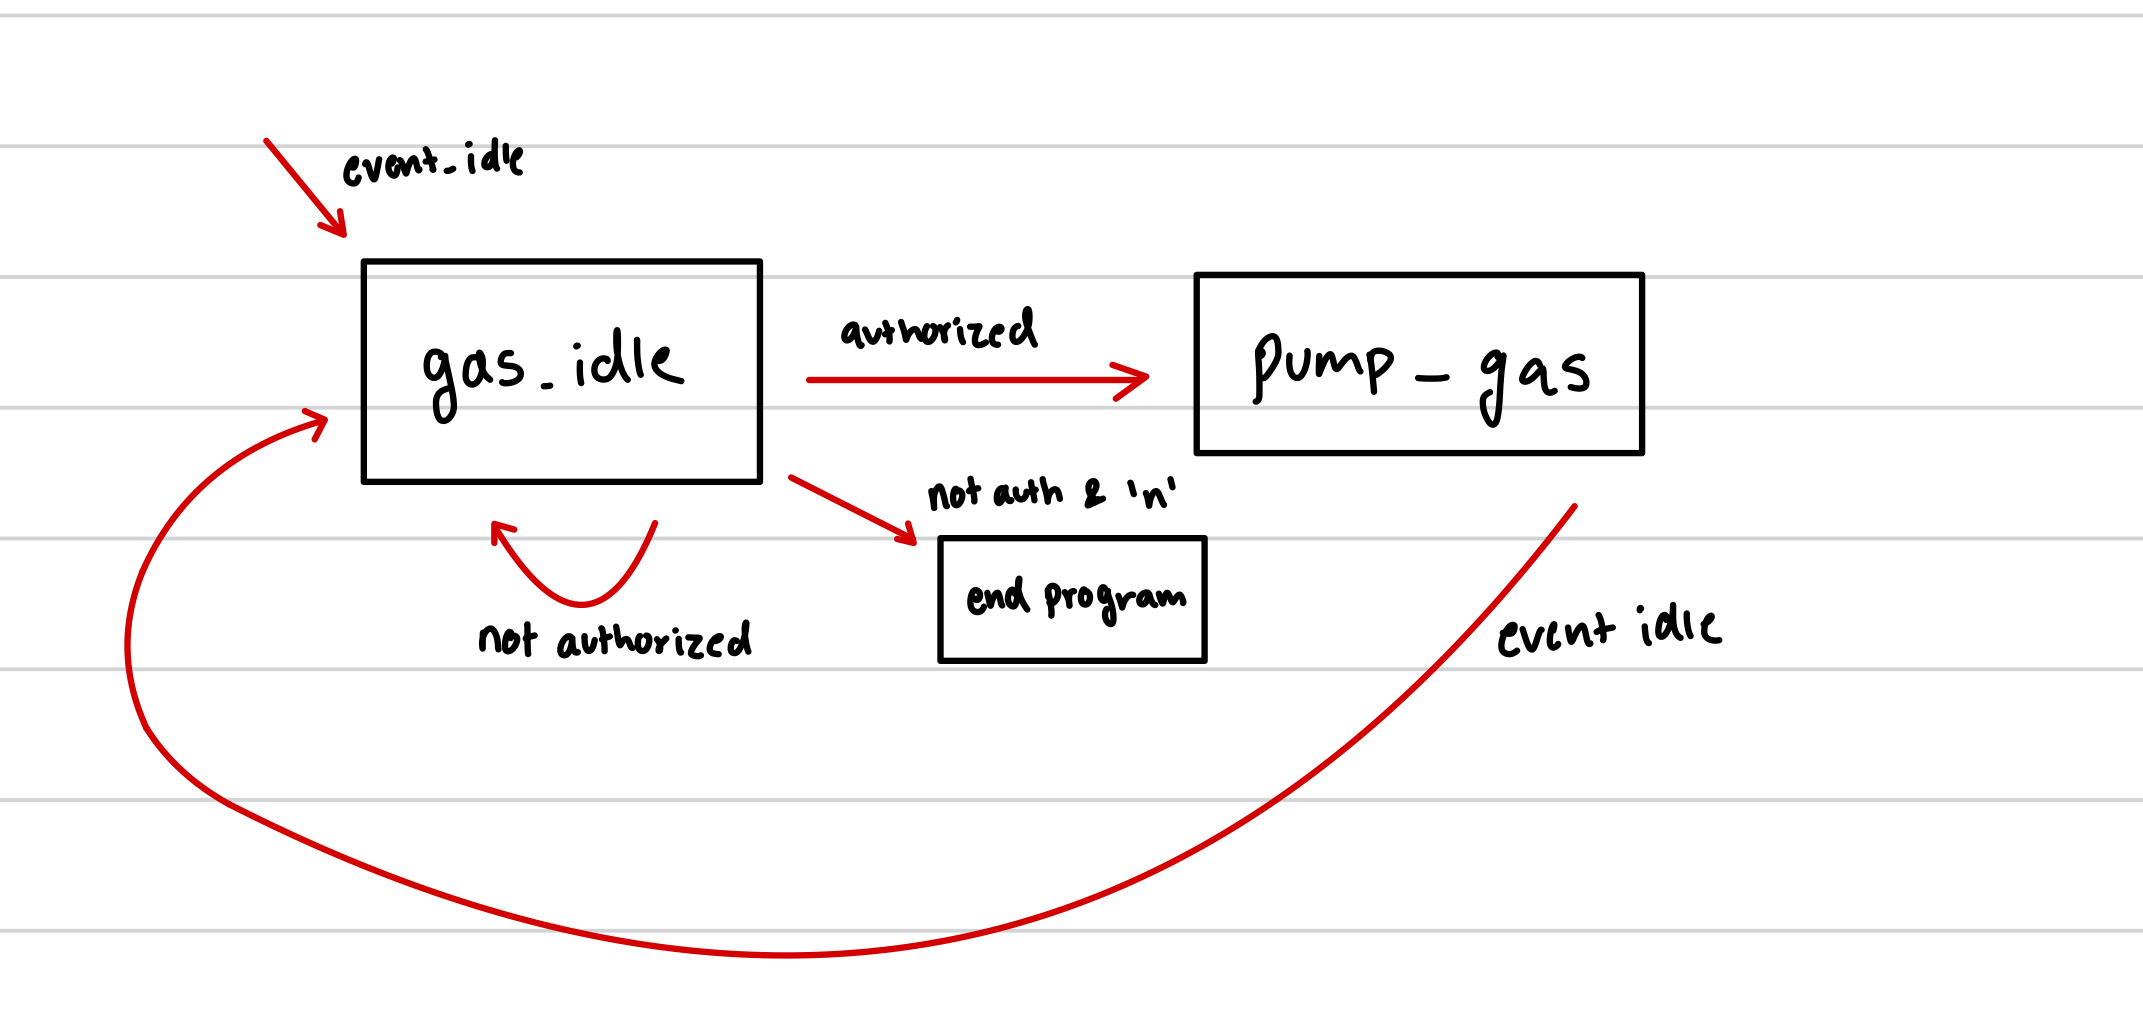 event_idle
gas_idle
authorized
pump_gas
not auth & 'n'
end program
not authorized
event idle